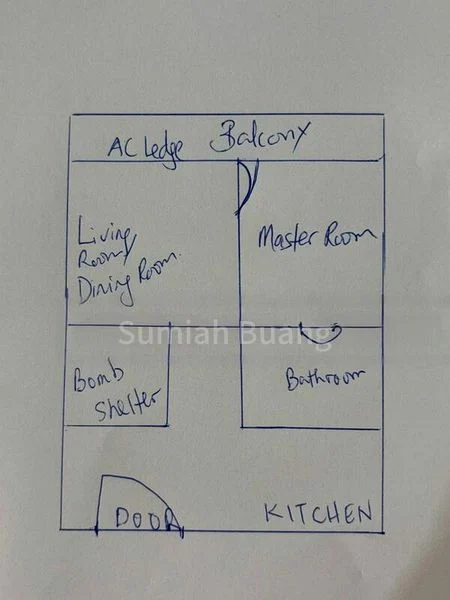 AC Ledge Balcony
Living
Room/
Dining Room.
Master Room
Sumiah Buang
Bomb
Shelter
Bathroom
DOOR
KITCHEN